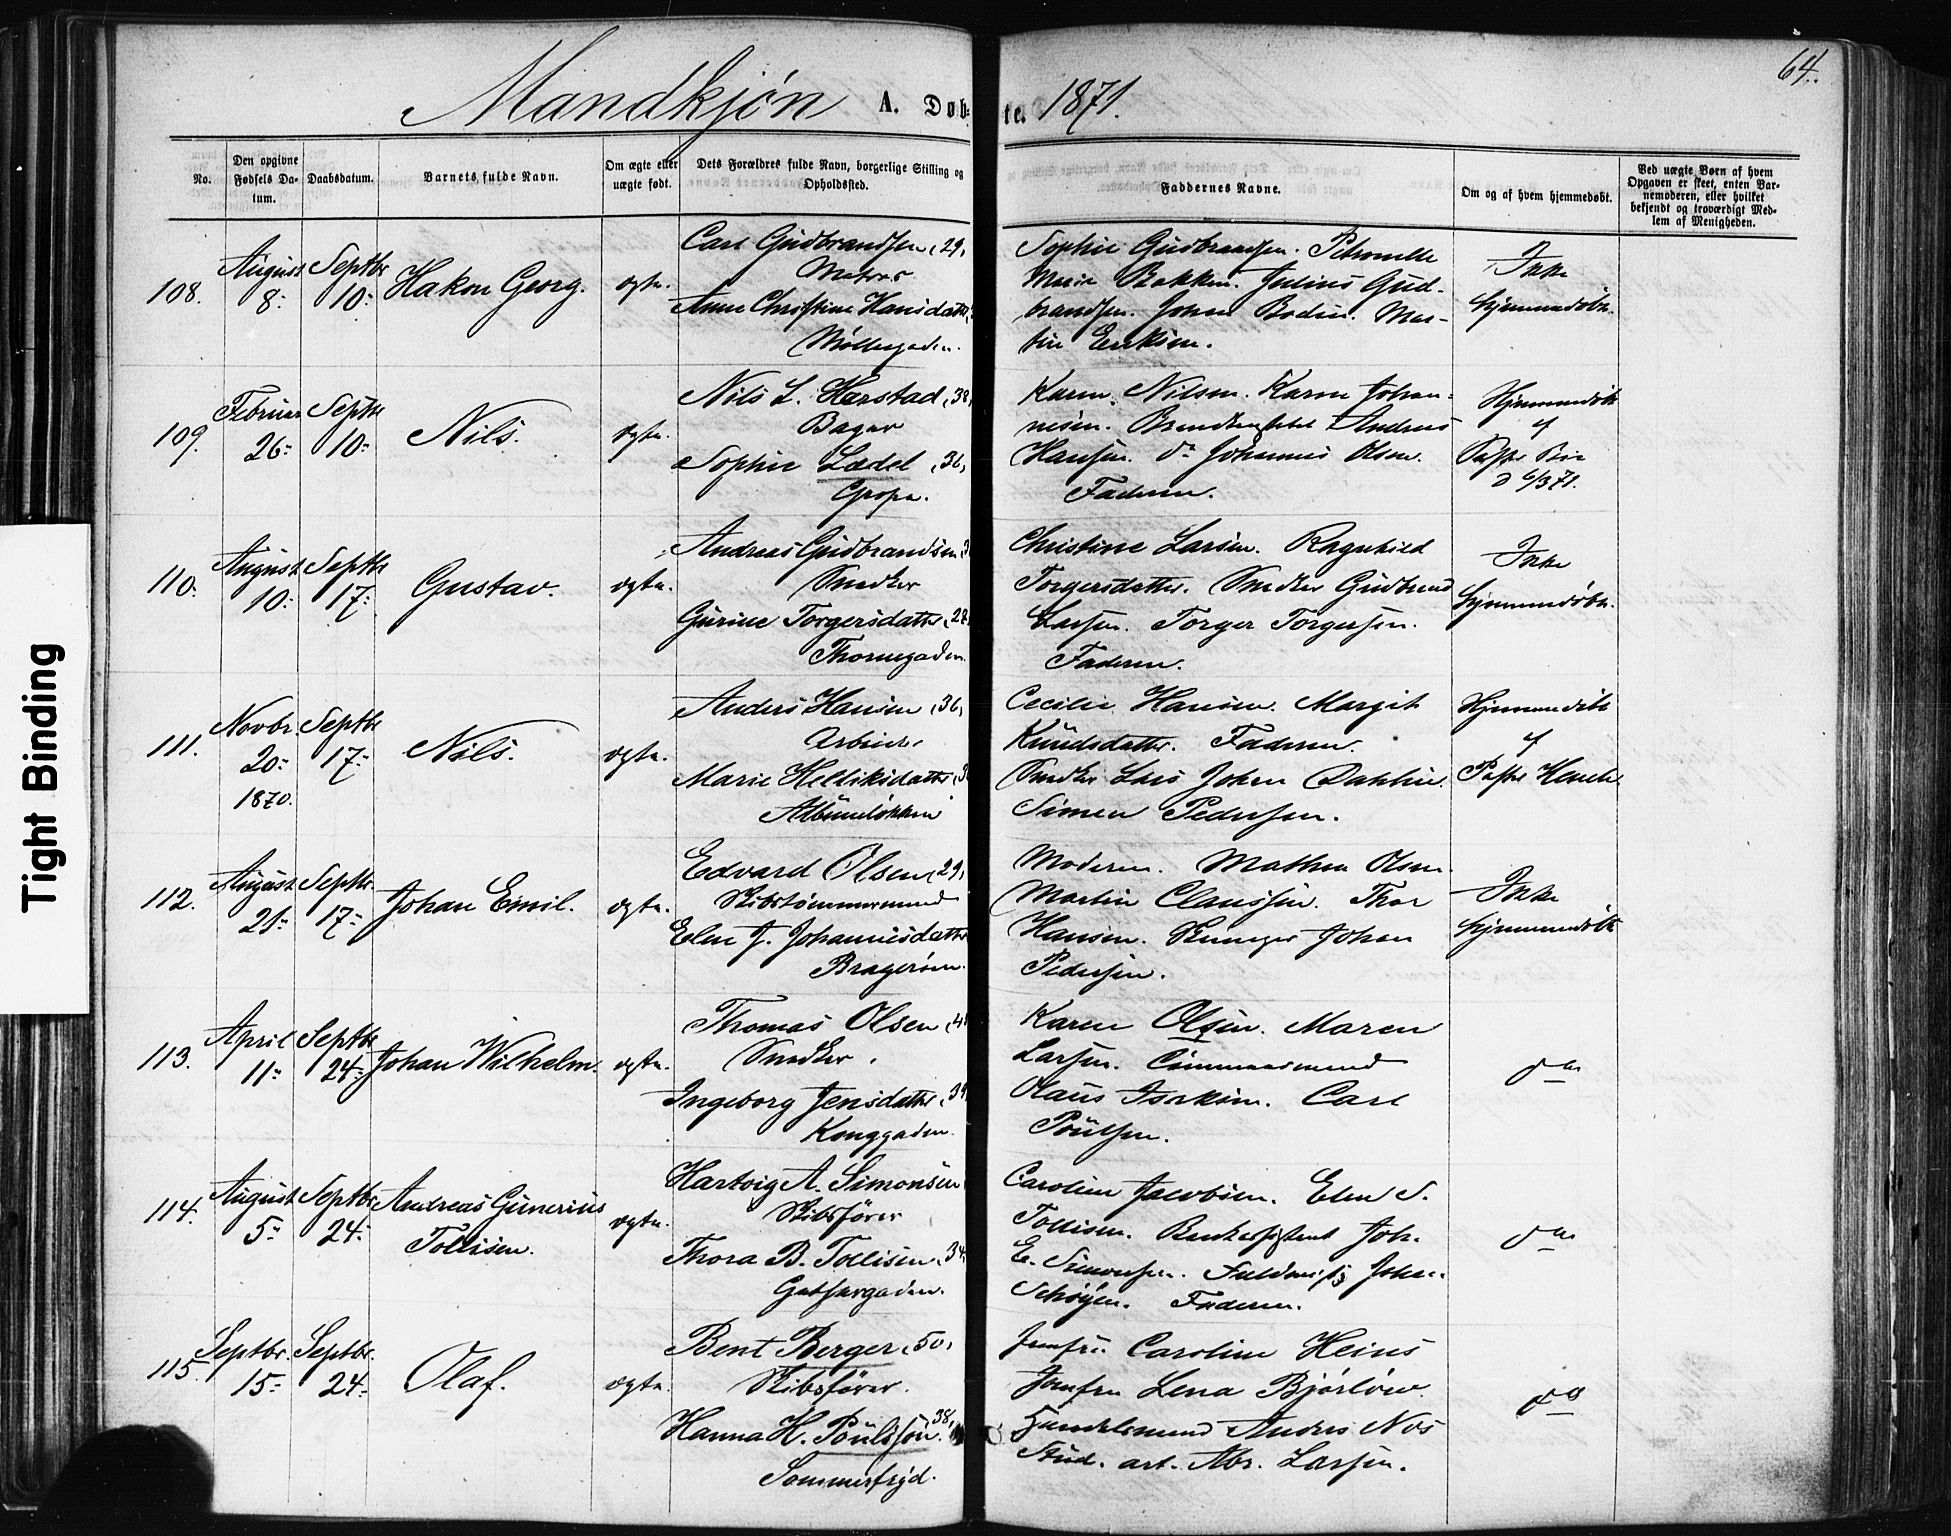 64.
Mandkjøn A. Døb-
te. 1871.
No.
Den opgivne Fødsels Da-
tum.
Daabsdatum.
Barnets fulde Navn.
Om ægte eller
uægte født.
Dets Forældres fulde Navn, borgerlige Stilling og
Opholdssted.
Faddernes Navne.
Om og af hvem hjemmedøbt.
Ved uægte Børn af hvem
Opgaven er skeet, enten Bar-
nemoderen, eller hvilket
bekjendt og troværdigt Med-
lem af Menigheden.
108.
August
8-
Septbr
10-
Hakon Georg.
ægte.
Carl Gudbrandsen (29,
Matros
Anne Christine Hansdatter
Møllergaden.
Sophie Gudbrandsen. Petronelle
Marie Bakken. Julius Gud-
brandsen. Johan Bodin. Mar-
tin Eriksen.
Ikke
hjemmedøbt.
109.
Februar
26-
Septbr
10-
Nils.
ægte.
Nils L. Harstad (38,
Bager
Sophie Lædel (36,
Gropa.
Karen Nilsen. Karen Johan-
nesen. Andreas
Hansen. do Johannes Olsen.
Faderen.
Hjemmedøbt
af
d 6/3 71.
110.
August
10-
Septbr
17-
Gustav.
ægte.
Andreas Gudbrandsen
Snedker
Gurine Torgersdatter (28,
Thornegaden.
Christine Larsen. Ragnhild
Torgersdatter. Snedker Gudbrand
Larsen. Torger Torgersen.
Faderen.
Ikke
hjemmedøbt.
111.
Novbr.
20-
1870.
Septbr
17-
Nils.
ægte.
Anders Hansen (36,
Arbeider
Marie Helliksdatter
Albumløkken
Cecilie Hansen. Margit
Knudsdatter. Faderen.
Snedker Lars Johan Dahlin.
Simen Pedersen.
Hjemmedøbt
af
112.
August
21-
Septbr.
17-
Johan Emil.
ægte.
Edvard Olsen (29,
Skibstømmermand
Elen J. Johannesdatter
Bragerøen.
Moderen. Mathea Olsen
Martin Claussen. Thor
Hansen. Johan
Pedersen.
Ikke
hjemmedøbt
113.
April
11-
Septbr
24-
Johan Wilhelm.
ægte.
Thomas Olsen
Snedker.
Ingeborg Jensdatter (39
Konggaden.
Karen Olsen. Maren
Larsen. Tømmermand
Olaus Isaksen. Carl
Poulsen.
do
114.
August
5-
Septbr
24-
Andreas Gunerius
Tollisen.
ægte.
Hartvig A. Simonsen
Skibsfører
Thora B. Tollisen (34,
Caroline Jacobsen. Elen S.
Tollisen. Bankassistent Joh.
E. Simonsen. Fuldmægtig Johan
Schøyen. Faderen.
do
115.
Septbr.
15-
Septbr.
24-
Olaf.
ægte.
Bent Berger (50,
Skibsfører.
Hanna H. Poulsson. 38,
Sommerfryd.
Jomfru Caroline Heins
Jomfru Lena Bjørløw.
Handelsmand Anders Nos
Stud. art. Abr. Larsen.
do
Tight Binding